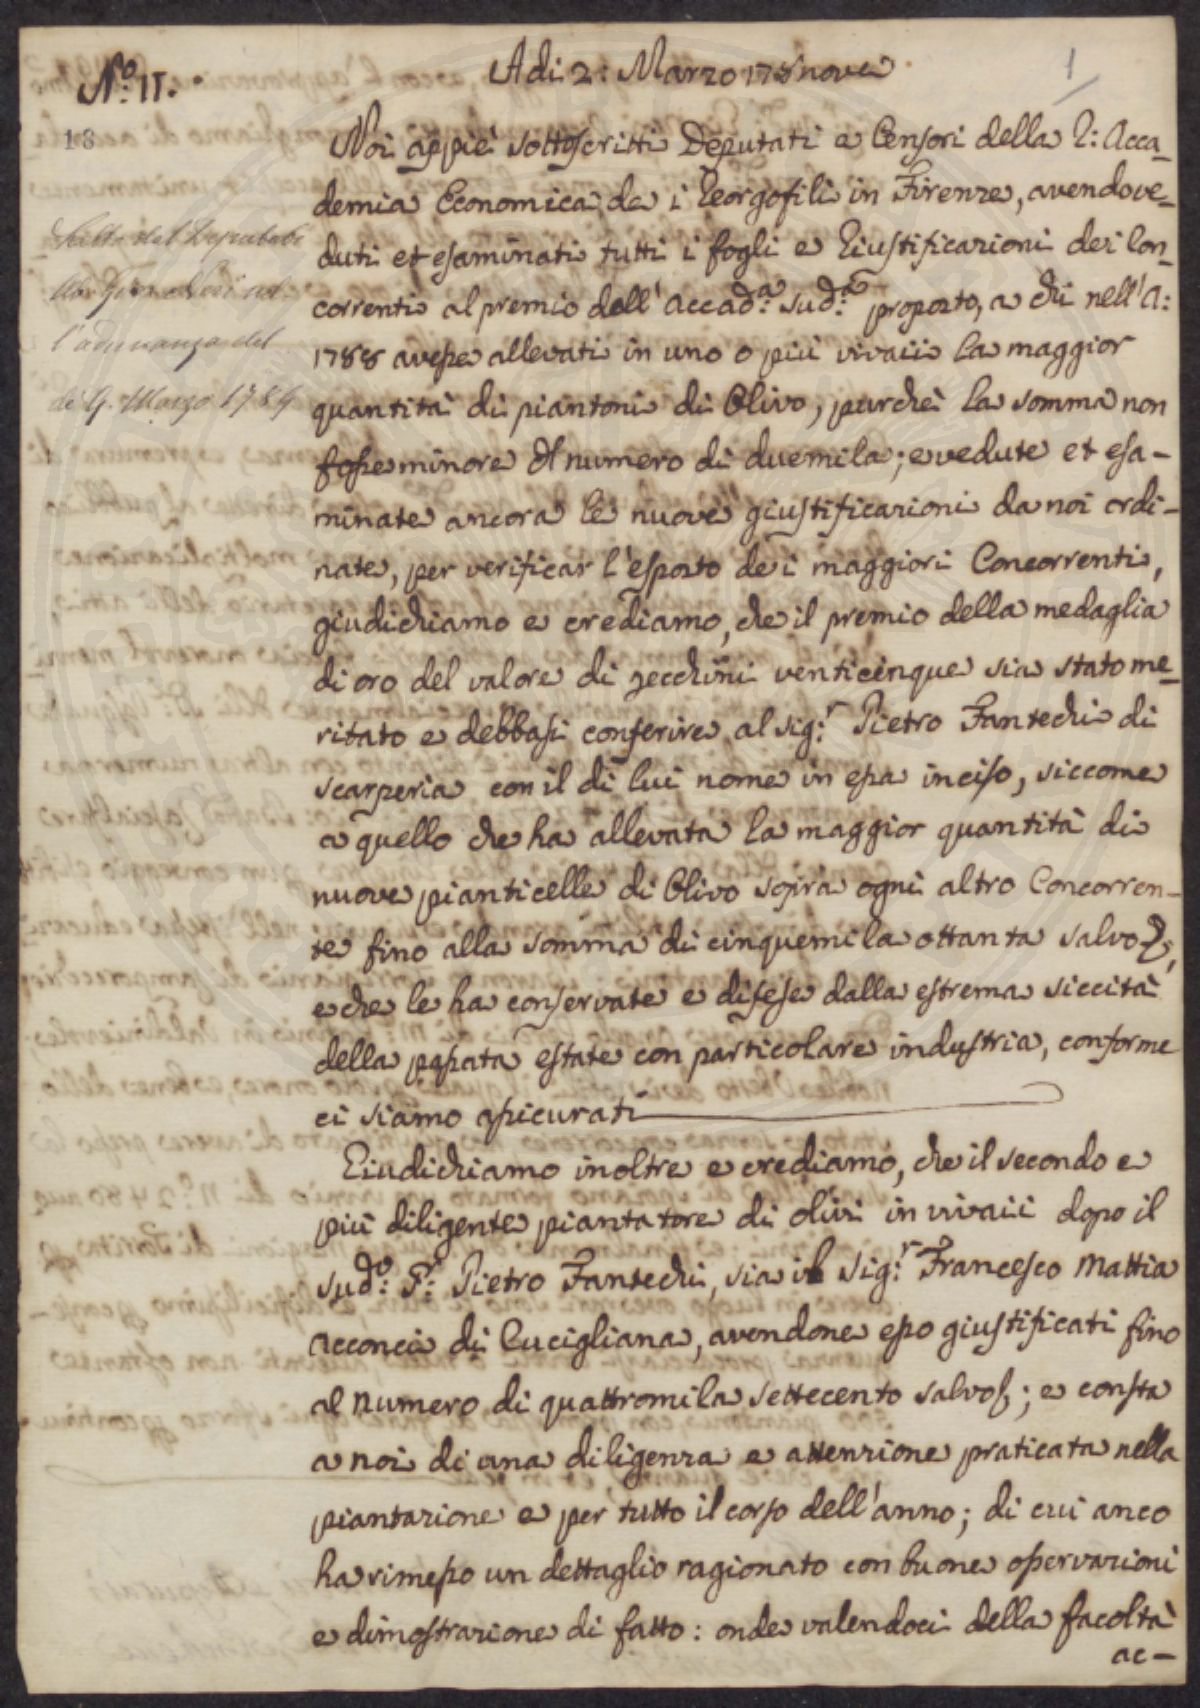 N.º 11.
Adi 2: Marzo 178nove
1
18
Noi appiè sottoscritti Deputati e Censori della R: Acca-
demia Economica de i Georgofili in Firenze, avendo ve-
duti et esaminati tutti i fogli e Giustificazioni dei Con-
correnti al premio dell'Accad.ª sud.ª proposto, a chi nell'A:
1788 avesse allevati in uno o più vivaii la maggior
quantità di piantoni di Olivo, purchè la somma non
fosse minore di numero di duemila; e vedute et esa-
minate ancora le nuove giustificazioni da noi ordi-
nate, per verificar l'esposto dei maggiori Concorrenti,
giudichiamo e crediamo, che il premio della medaglia
di oro del valore di zecchini venticinque sia stato me-
ritato e debbasi conferire al Sig.r Pietro Fantechi di
Scarperia con il di lui nome in essa inciso, siccome
a quello che ha allevata la maggior quantità di
nuove pianticelle di Olivo sopra ogni altro Concorren-
te fino alla somma di cinquemila ottanta salvo
e che le ha conservate e difese dalla estrema siccità
della passata estate con particolare industria, conforme
ci siamo assicurati
Giudichiamo inoltre e crediamo, che il secondo e
più diligente piantatore di olivi in vivaii dopo il
sud.º S.r Pietro Fantechi, sia il Sig.r Francesco Mattia
Acconci di Cucigliana, avendone esso giustificati fino
al numero di quattromila settecento salvo; e consta
a noi di una diligenza e attenzione praticata nella
piantazione e per tutto il corso dell'anno; di cui anco
ha rimesso un dettaglio ragionato con buone osservazioni
e dimostrazione di fatto: onde valendoci della facoltà
ac-
Letto dal Deputato
nel-
l'adunanza del
dì 9. Marzo 1789